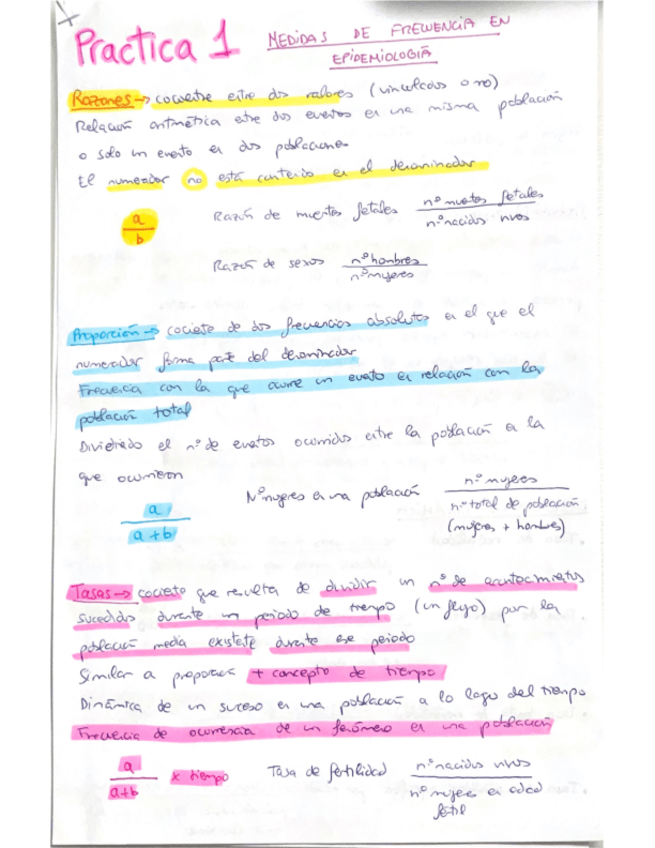 Practica 1 MEDIDAS DE FRECUENCIA EN
EPIDEMIOLOGÍA
Razones → cociente entre dos valores (vinculados o no)
Relación aritmética entre dos eventos en una misma población
o solo un evento en dos poblaciones
El numerador no está contenido en el denominador
a
b
Razón de muertos fetales nº muertos fetales
nº nacidos vivos
Razón de sexos nº hombres
nº mujeres
Proporción → cociente de dos frecuencias absolutas en el que el
numerador forma parte del denominador
Frecuencia con la que ocurre un evento en relación con la
población total
Dividiendo el nº de eventos ocurridos entre la población en la
que ocurrieron
a
a+b
Nº mujeres en una población nº mujeres
nº total de población
(mujeres + hombres)
Tasas → cociente que resulta de dividir un nº de acontecimientos
sucedidos durante un periodo de tiempo (un flujo) por la
población media existente durante ese periodo
Similar a proporción + concepto de tiempo
Dinámica de un suceso en una población a lo largo del tiempo
Frecuencia de ocurrencia de un fenómeno en una población
a
a+b
x tiempo
Tasa de fertilidad nº nacidos vivos
nº mujeres en edad
fértil